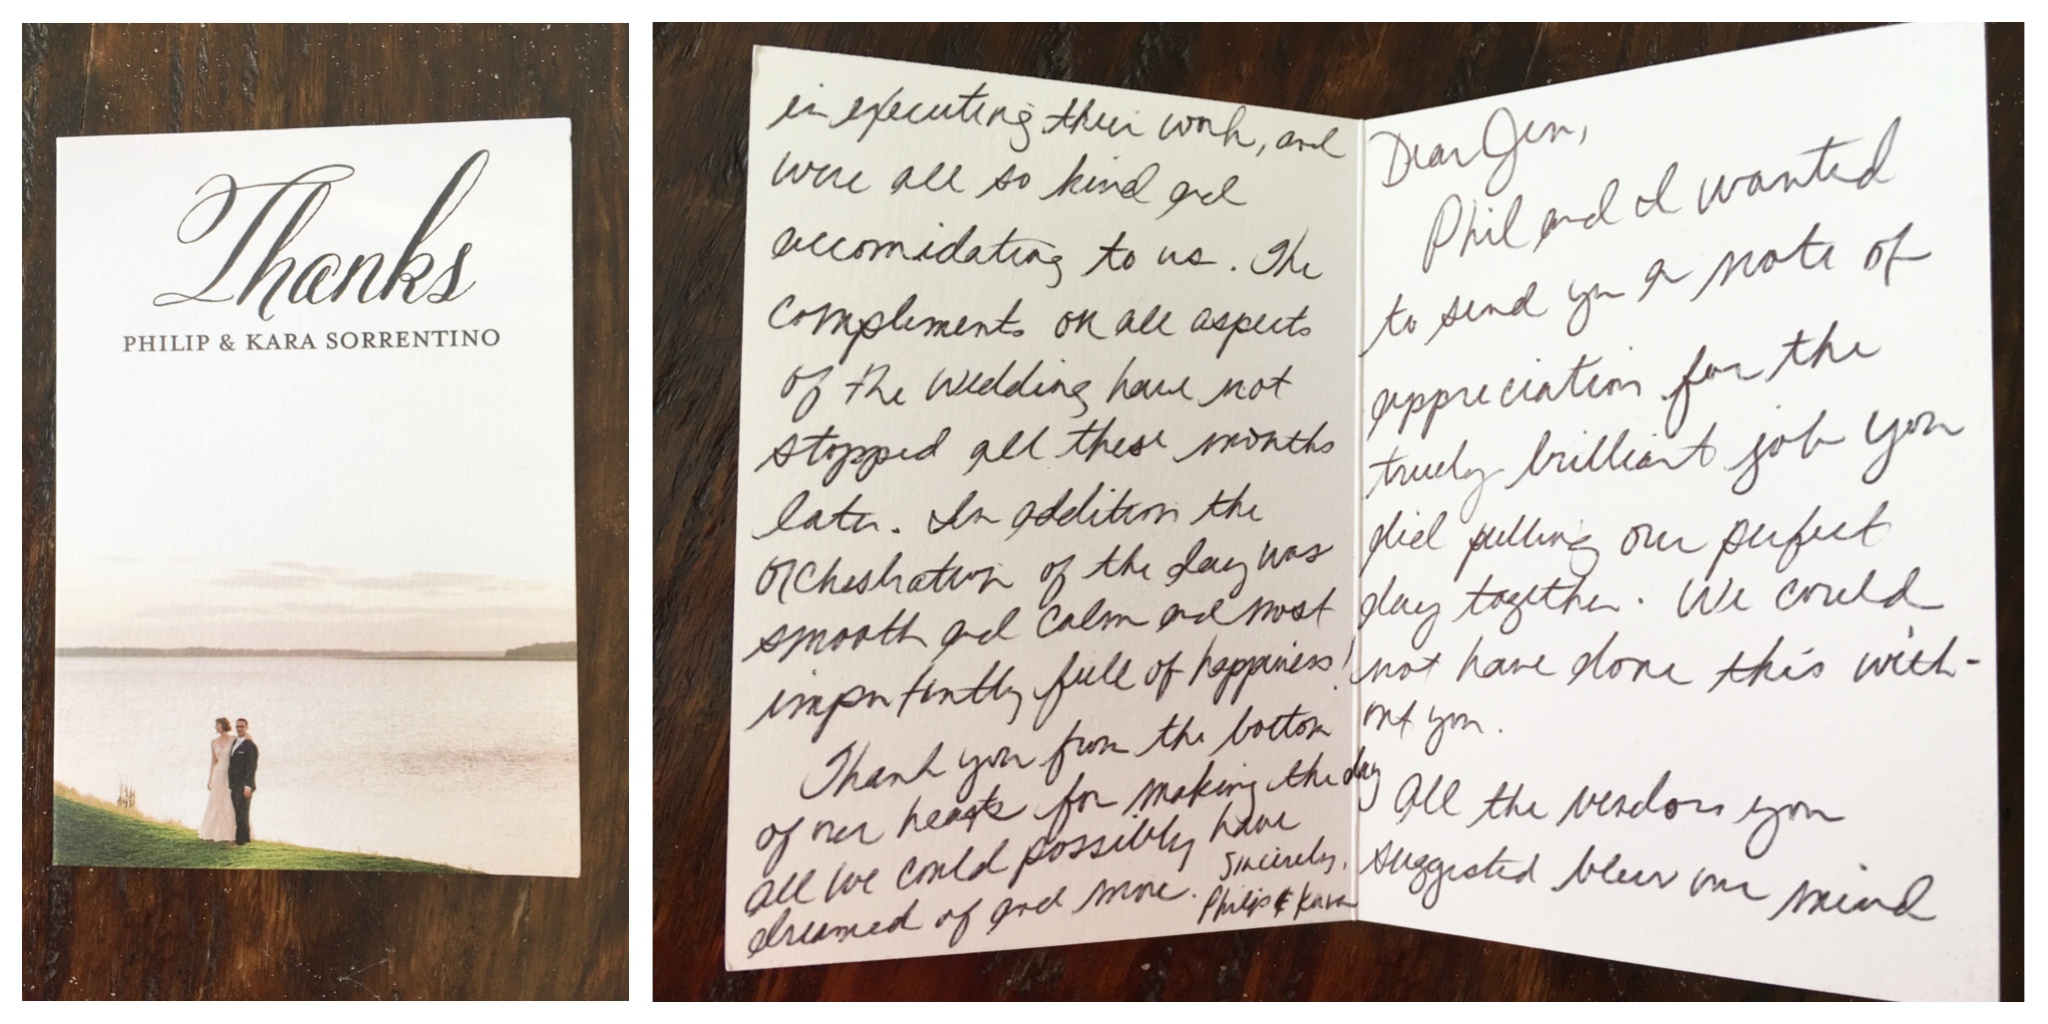 Thanks
PHILIP & KARA SORRENTINO
Dear Jen,
Phil and I wanted
to send you a note of
appreciation for the
truely brilliant job you
did pulling our perfect
day together. We could
not have done this with-
out you.
All the vendors you
suggested blew our mind
in executing their work, and
were all so kind and
accomidating to us. The
compliments on all aspects
of the wedding have not
stopped all these months
later. In addition the
orchestration of the day was
smooth and calm and most
importantly full of happiness!
Thank you from the bottom
of our hearts for making the day
all we could possibly have
dreamed of and more.
Sincerely,
Philip & Kara